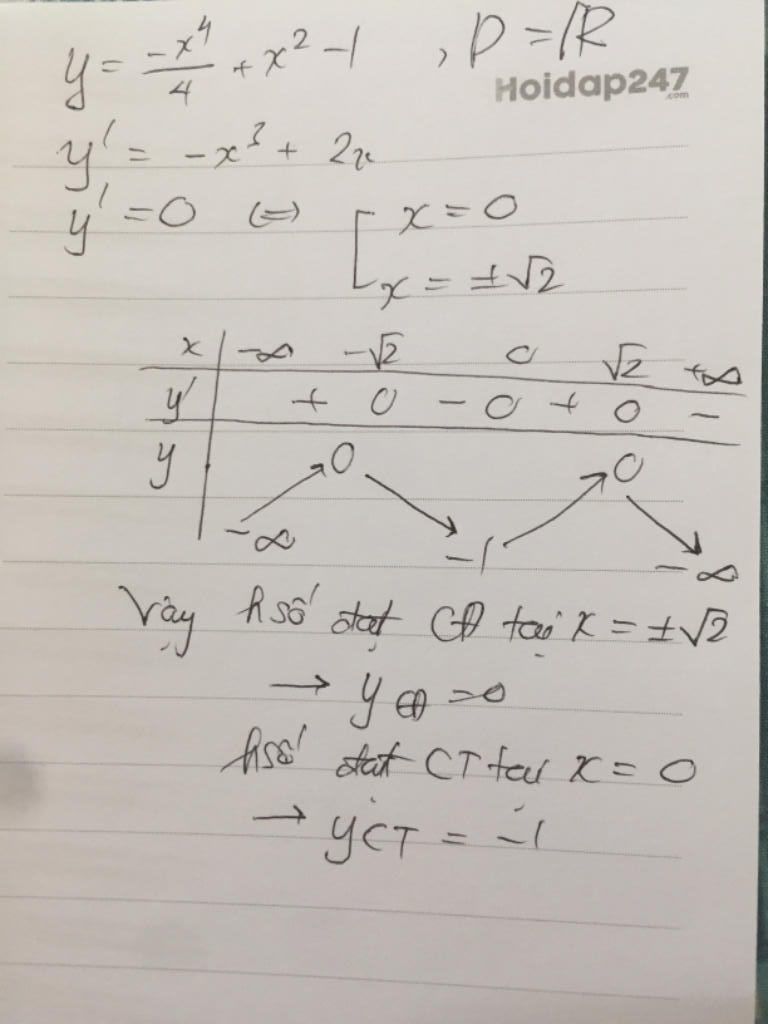 y = -x⁴/4 + x² - 1 , D = ℝ
Hoidap247
.com
y' = -x³ + 2x
y' = 0 (=) [ x = 0
x = ±√2
x | -∞ -√2 0 √2 +∞
y' | + 0 - 0 + 0 -
y | 0 0
-∞ -1 -∞
Vậy hsố đạt CĐ tại x = ±√2
→ y CĐ = 0
hsố đạt CT tại x = 0
→ yCT = -1